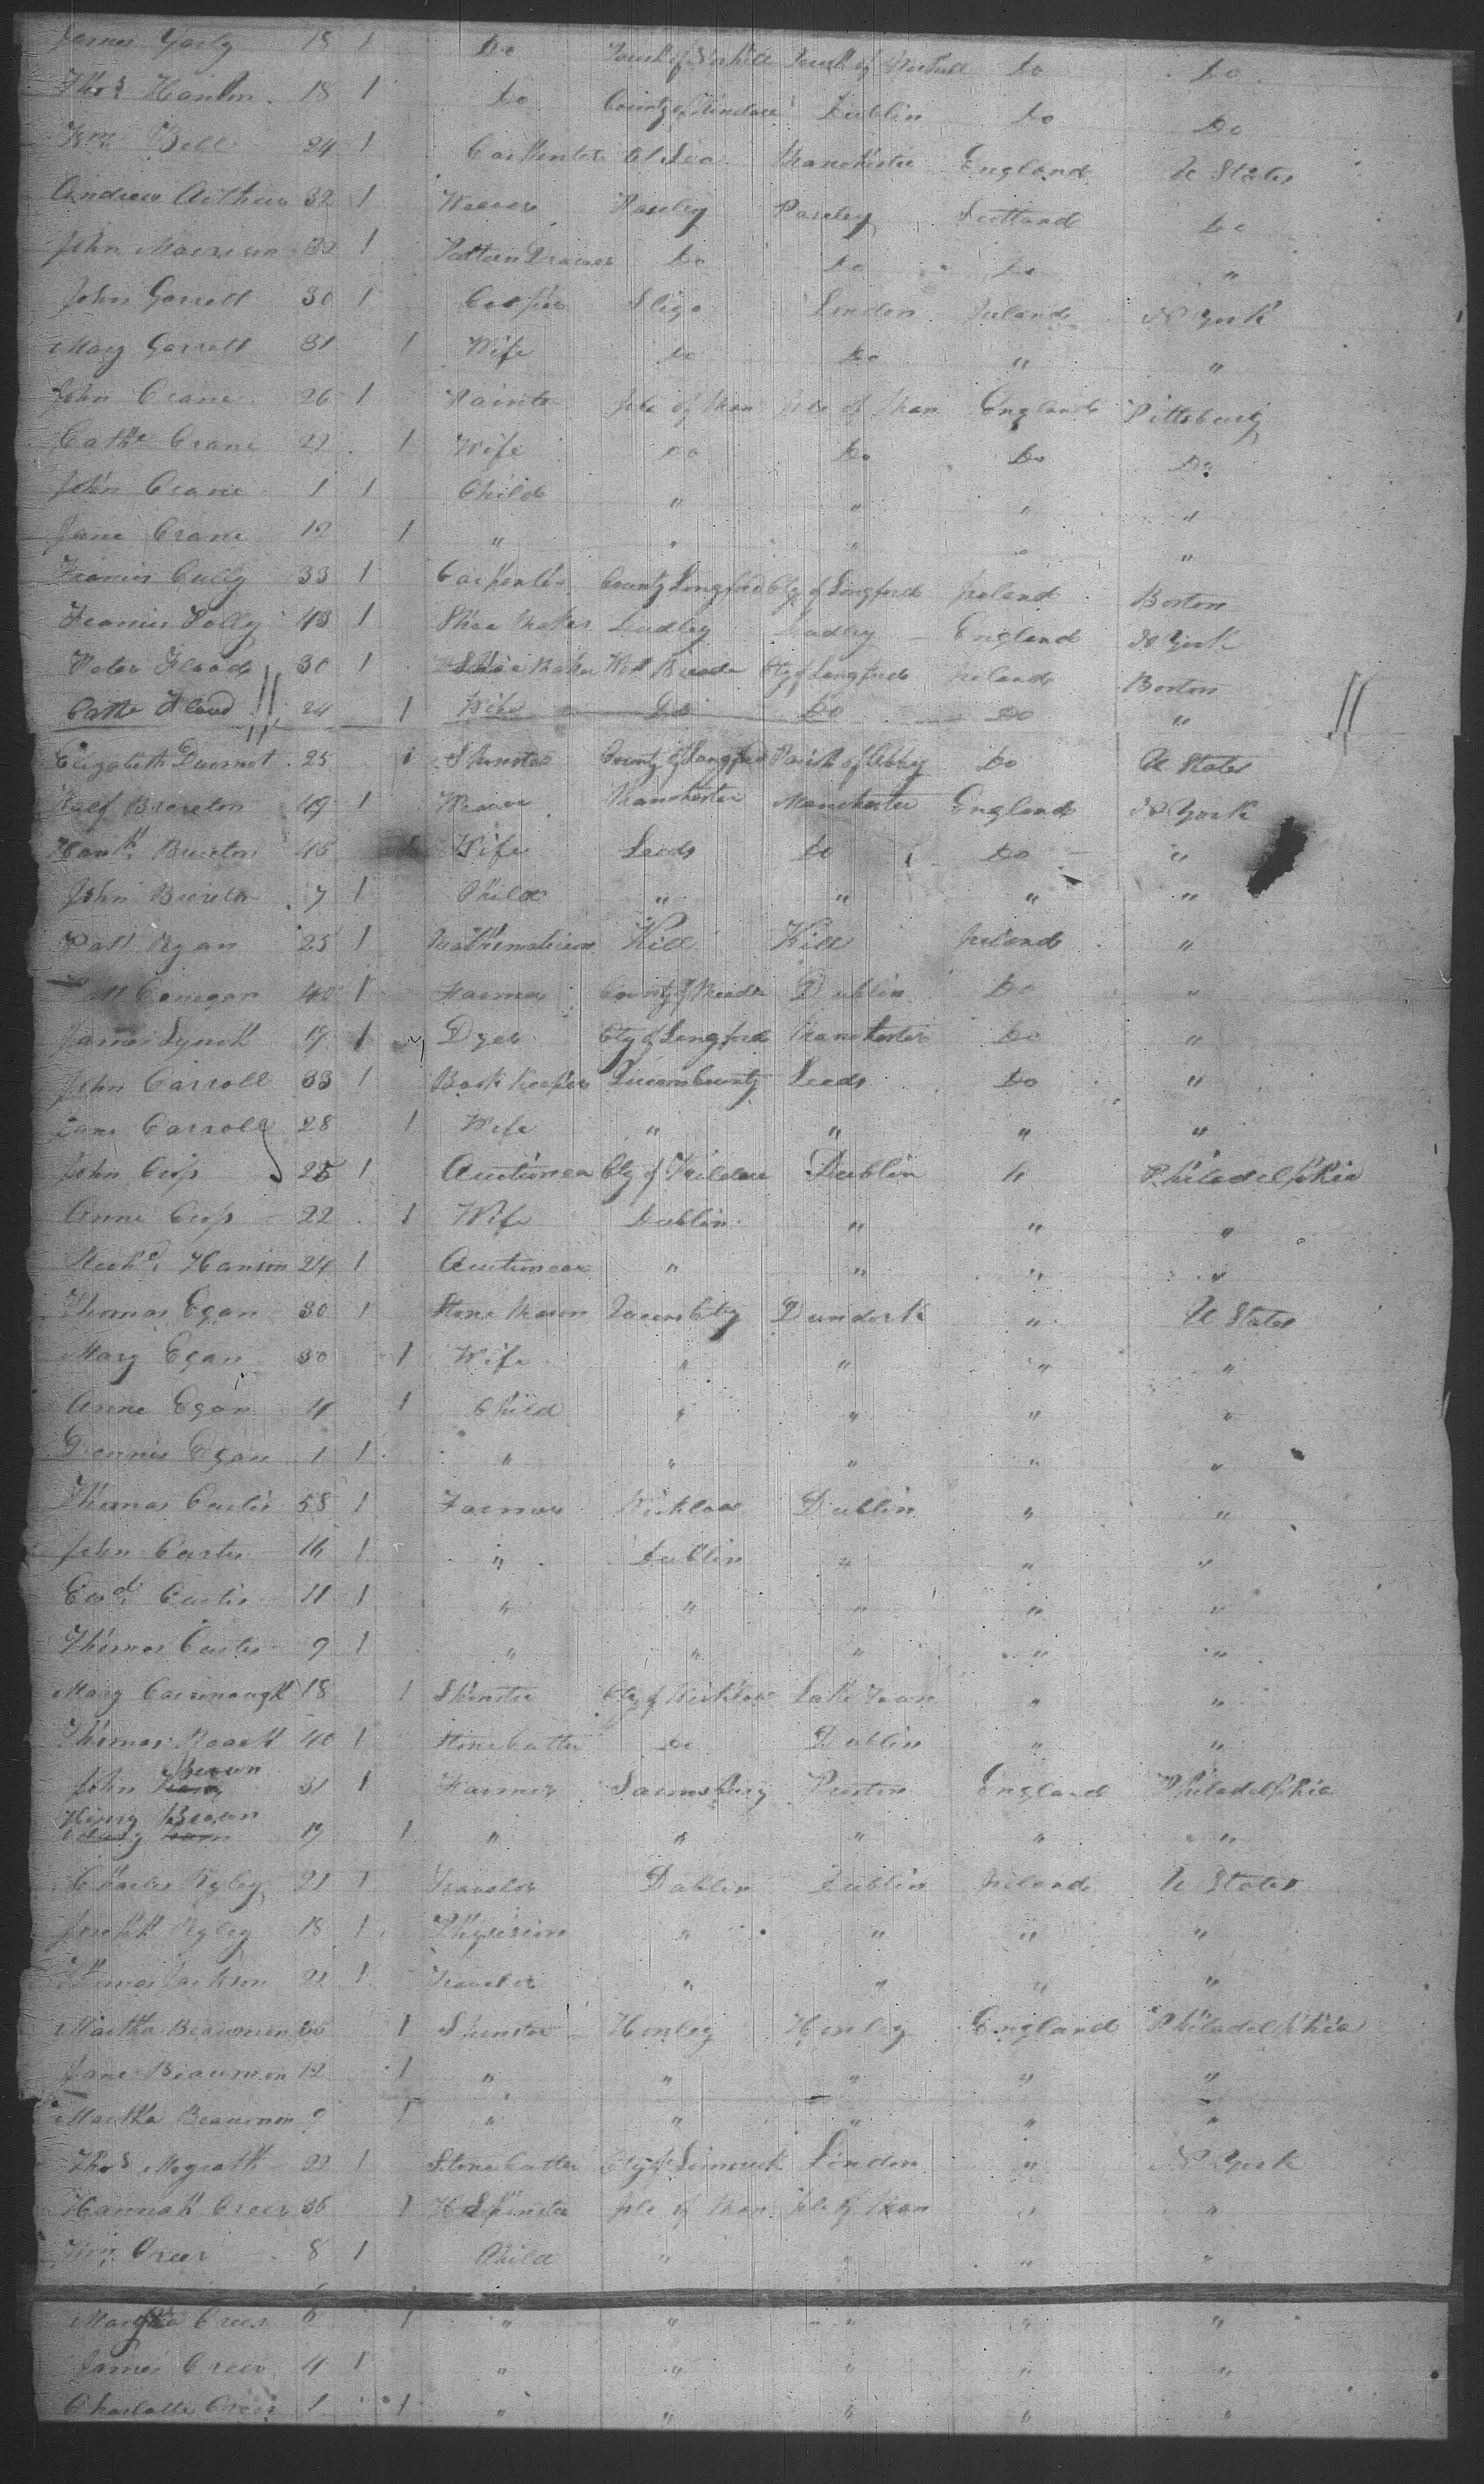 James 18 1 Do Do Do
Thos Hanlon 18 1 Do County of Kildare Dublin Do Do
Wm Bell 24 1 Carpenter At Sea Manchester England U States
Andrew Arthur 32 1 Weaver Pasley Pasley Scotland Do
John Morrison 32 1 Pattern Drawer Do Do Do "
John Garrett 30 1 Cooper Sligo London Ireland N York
Mary Garrett 31 1 Wife Do Do " "
John Crane 26 1 Painter Isle of Man Isle of Man England Pittsburg
Cathe Crane 22 1 Wife Do Do Do Do
John Crane 1 1 Child " " " "
Jane Crane 12 1 " " " " "
Francis Cully 33 1 Carpenter County Longford Cty of Longford Ireland Boston
Francis Polly 43 1 Shoe Maker Dudley Dudley England N York
Peter Flood 30 1 Shoe Maker West Cty of Longford Ireland Boston
Cathe Flood 24 1 Wife Do Do Do "
Elizabeth Dermot 25 1 Spinster County of Longford Parish of Abbey Do U States
Ralf Brereton 49 1 Weaver Manchester Manchester England N York
Hanh Brereton 45 Wife Leeds Do Do "
John Brereton 7 1 Child " " " "
Patt Ryan 25 1 Mathematician Kill Kill Ireland "
Patt Conegar 40 1 Farmer County of Meade Dublin Do "
James Lynch 19 1 Dyer Cty of Longford Manchester Do "
John Carroll 33 1 Book Keeper Queens County Leeds Do "
Jane Carroll 28 1 Wife " " " "
John Cusp 25 1 Auctioneer Cty of Kildare Dublin " Philadelphia
Anne Cusp 22 1 Wife Dublin " " "
Richd Hanson 24 1 Auctioneer " " " "
Thomas Egan 30 1 Stone Mason Queens Cty Dundork " U States
Mary Egan 30 1 Wife " " " "
Anne Egan 4 1 Child " " " "
Dennis Egan 1 1 " " " " "
Thomas Curtis 58 1 Farmer Wicklow Dublin " "
John Curtis 14 1 " Dublin " " "
Edwd Curtis 11 1 " " " " "
Thomas Curtis 9 1 " " " " "
Mary Cavenaugh 18 1 Spinster Cty of Wicklow Lake Town " "
Thomas Roach 40 1 Stone Cutter Do Dublin " "
John Brown 31 1 Farmer Samsbury Preston England Philadelphia
Henry Brown 19 1 " " " " "
Charles Ryley 21 1 Travelor Dublin Dublin Ireland U States
Joseph Ryley 18 1 Physician " " " "
Thomas Jackson 22 1 Travelor " " " "
Martha Beaumon 36 1 Spinster Honley Honley England Philadelphia
Jane Beaumon 12 1 " " " " "
Martha Beaumon 9 1 " " " " "
Thos Mcgrath 22 1 Stone Cutter Cty of Limerick London " N York
Hannah Creer 36 1 Spinster Isle of Man Isle of Man " "
Wm Creer 8 1 Child " " " "
Creer 6 1 " " " " "
James Creer 4 1 " " " " "
Charlotte Creer 1 1 " " " " "